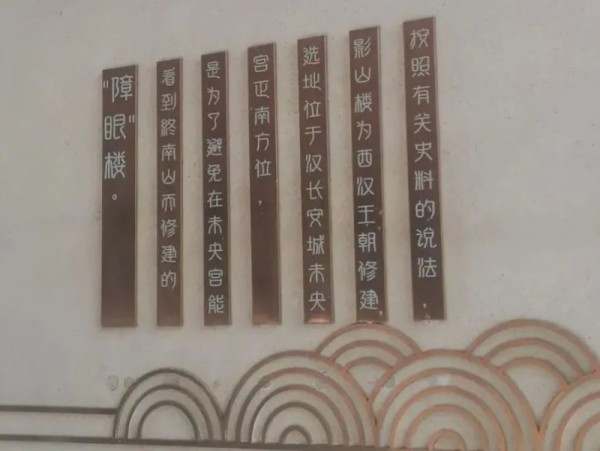 按照有关史料的说法，
影山楼为西汉王朝修建
选址位于汉长安城未央
宫正南方位，
是为了避免在未央宫能
看到终南山而修建的
“障眼”楼。